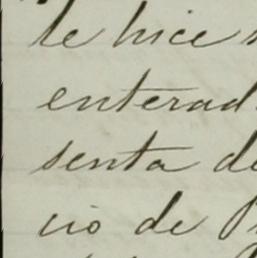 te hice
enterad
senta de
cio de